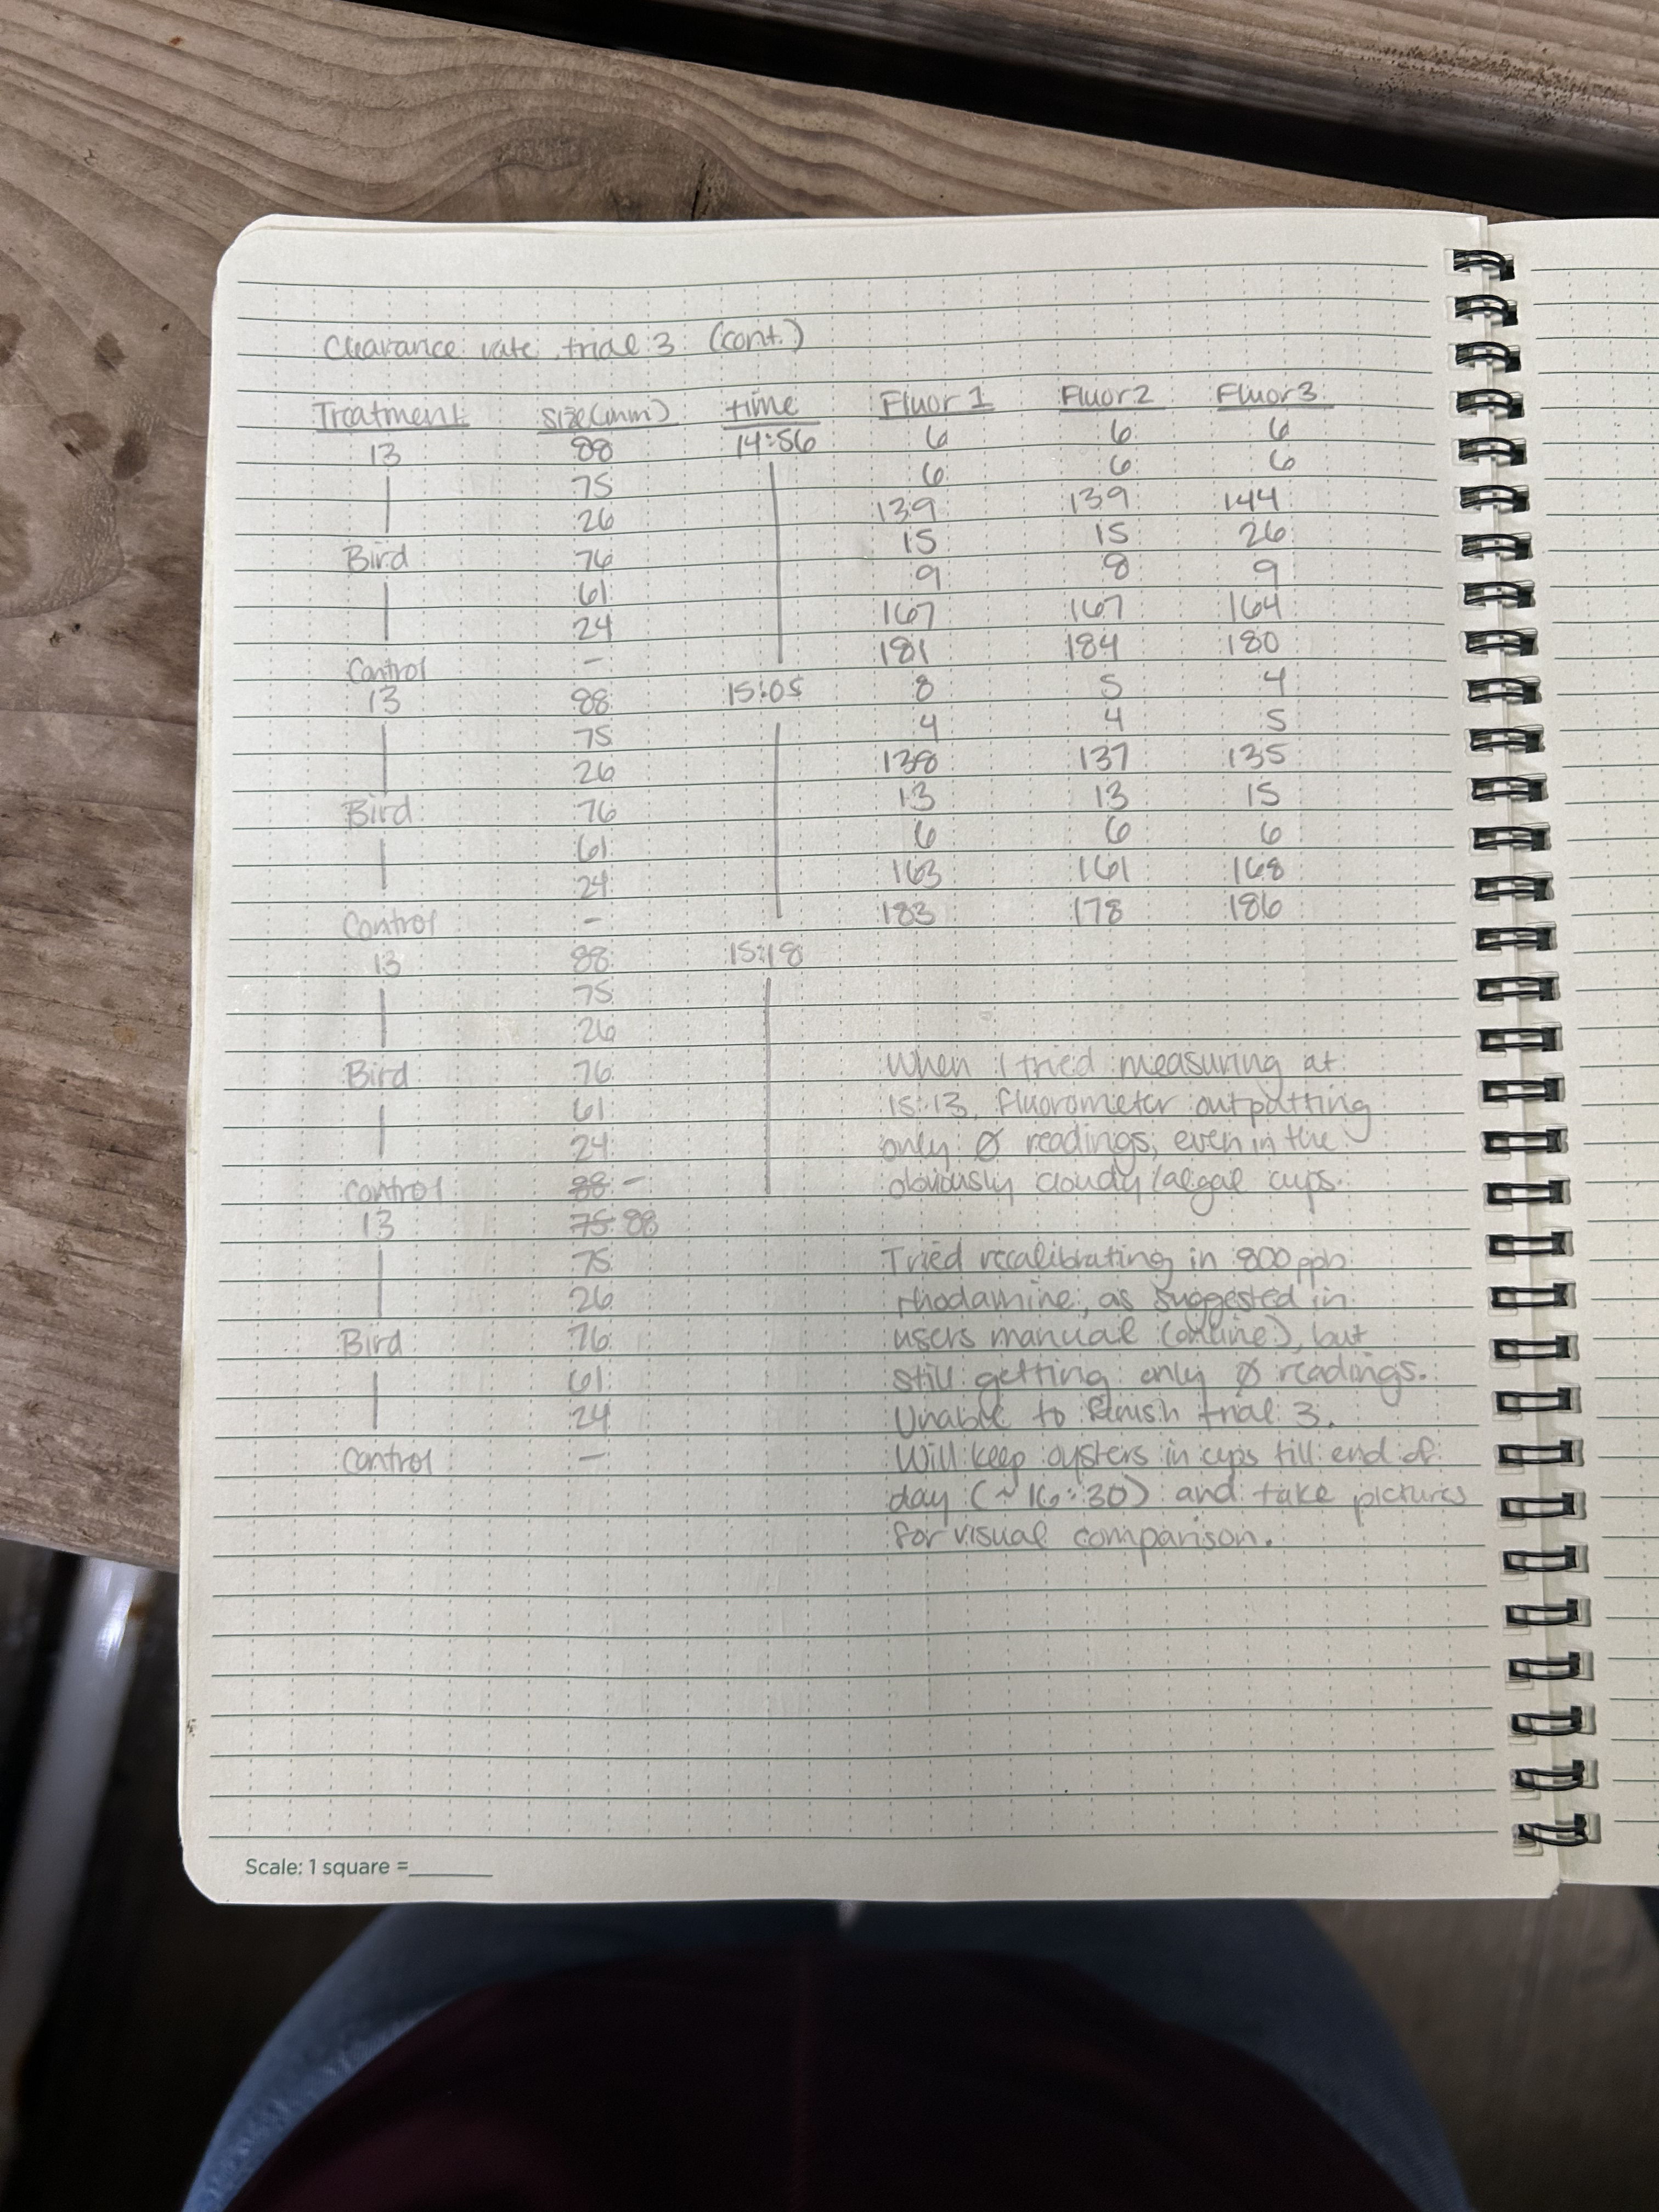 Clearance rate trial 3 (cont.)
Treatment size(mm) time Fluor 1 Fluor 2 Fluor 3
13 88 14:56 6 6 6
75 6 6 6
26 139 139 144
Bird 76 15 15 26
61 9 8 9
24 167 167 164
Control - 181 184 180
13 88 15:05 8 5 4
75 4 4 5
26 138 137 135
Bird 76 13 13 15
61 6 6 6
24 163 161 168
Control - 183 178 186
13 88 15:18
75
26
Bird 76 When I tried measuring at
61 15:13, fluorometer outputting
24 only Ø readings, even in the
Control 88 - obviously cloudy/algal cups.
13 75 88
75 Tried recalibrating in 800 ppb
26 rhodamine, as suggested in
Bird 76 users manual (online), but
61 still getting only Ø readings.
24 Unable to finish trial 3.
Control - Will keep oysters in cups till end of
day (~16:30) and take pictures
for visual comparison.
Scale: 1 square =